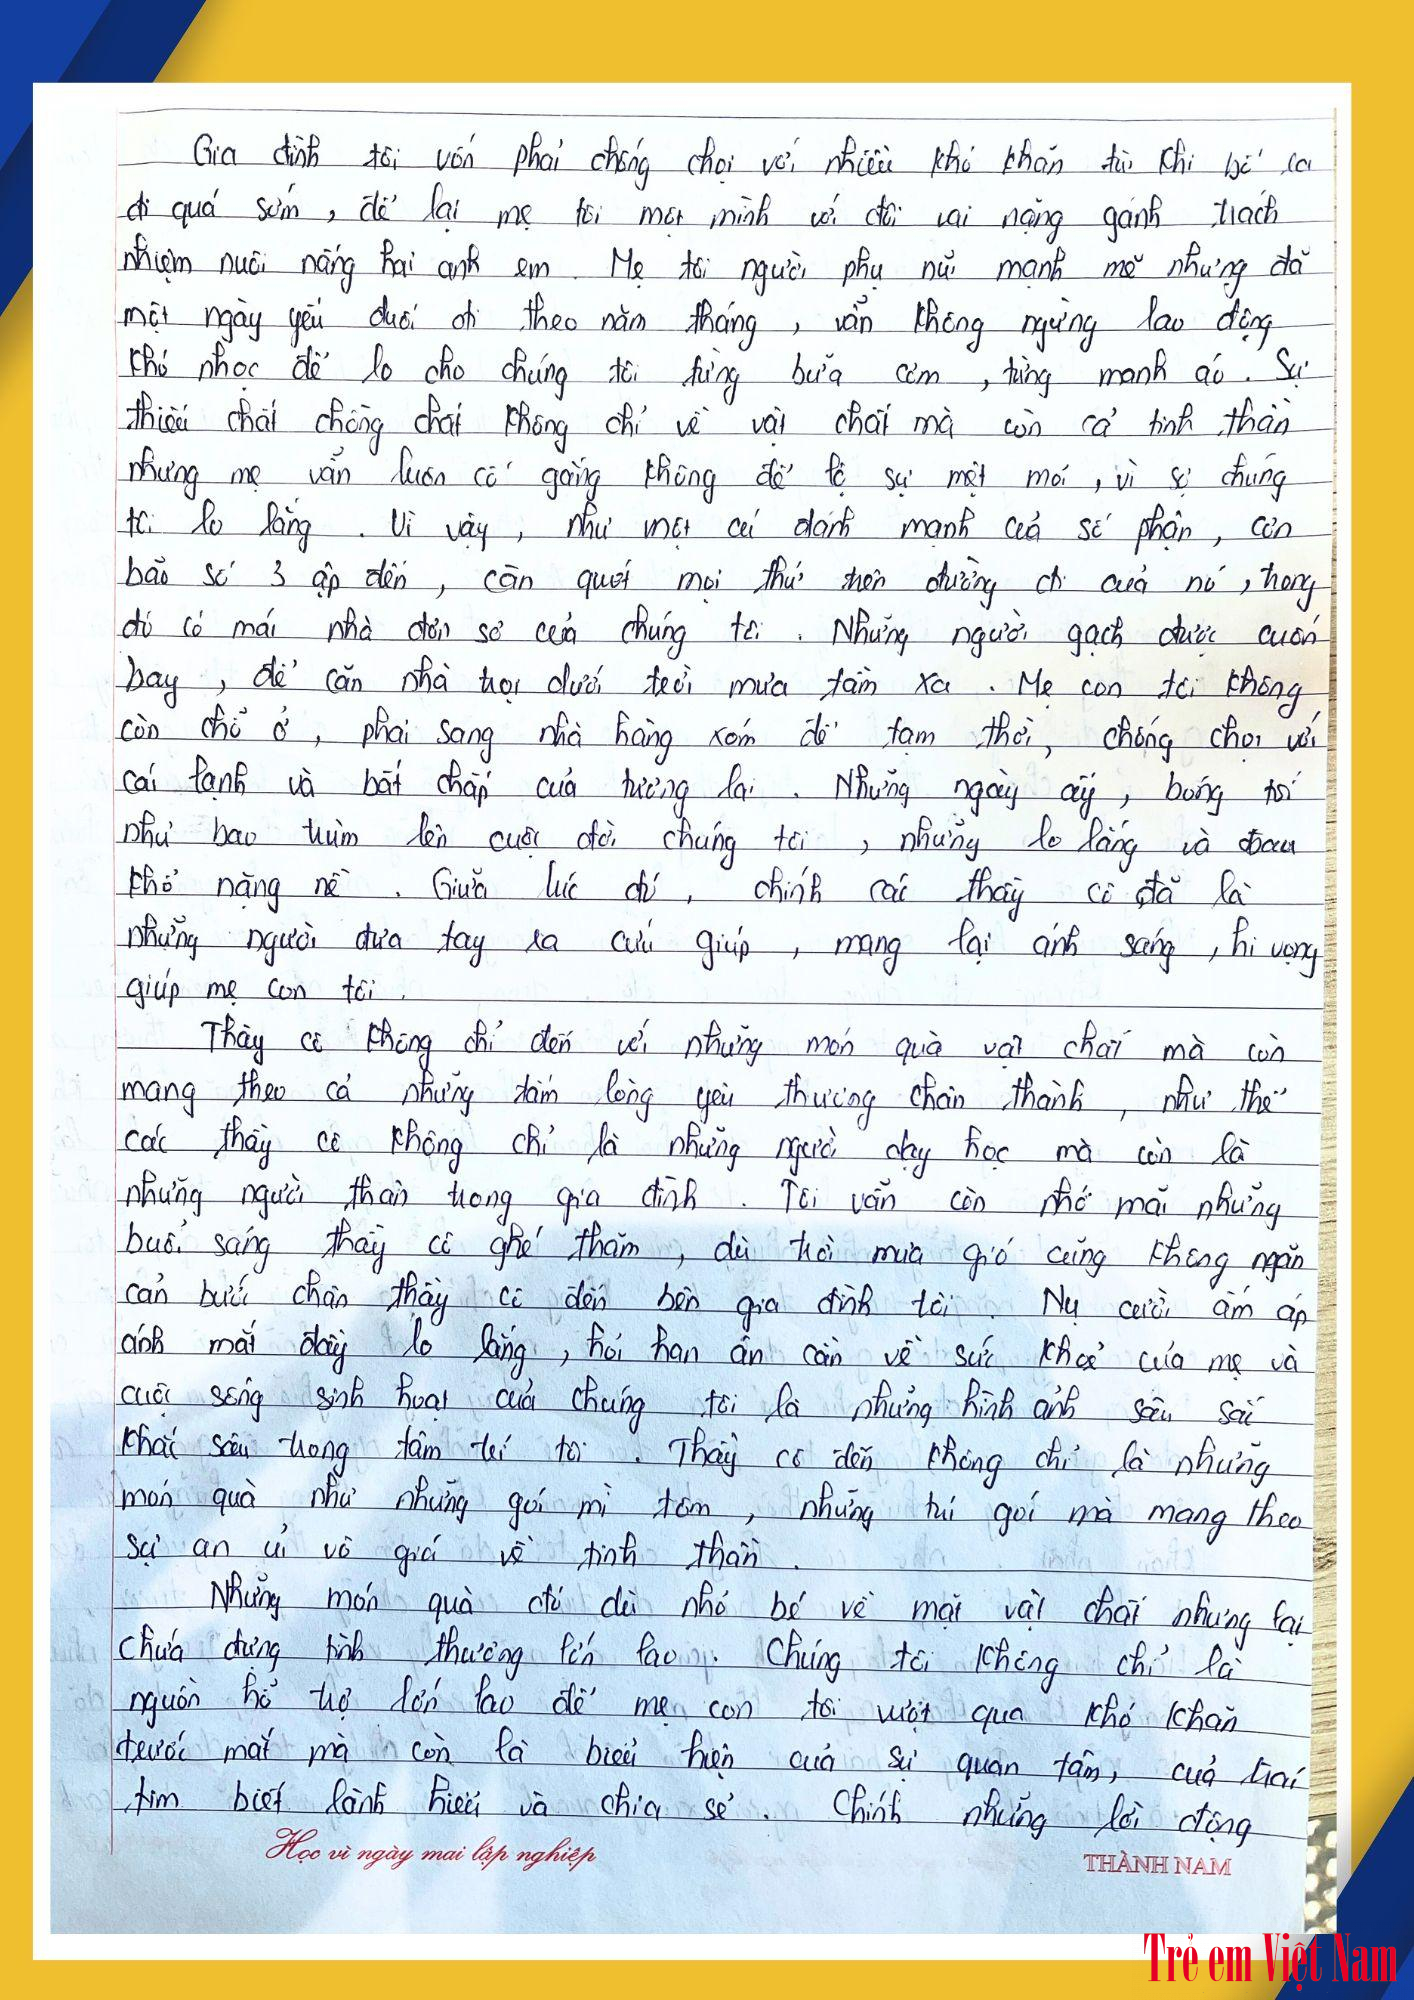 Gia đình tôi vốn phải chống chọi với nhiều khó khăn từ khi bố ra
đi quá sớm, để lại mẹ tôi một mình với đôi vai nặng gánh trách
nhiệm nuôi nấng hai anh em. Mẹ tôi người phụ nữ mạnh mẽ nhưng đã
một ngày yếu đuối đi theo năm tháng, vẫn không ngừng lao động
khó nhọc để lo cho chúng tôi từng bữa cơm, từng manh áo. Sự
thiếu chất chồng chất không chỉ về vật chất mà còn cả tinh thần
nhưng mẹ vẫn luôn cố gắng không để lộ sự mệt mỏi, vì sợ chúng
tôi lo lắng. Vì vậy, như một cú đánh mạnh của số phận, cơn
bão số 3 ập đến, càn quét mọi thứ trên đường đi của nó, trong
đó có mái nhà đơn sơ của chúng tôi. Những người gạch được cuốn
bay, để căn nhà trọi dưới trời mưa tầm xa. Mẹ con tôi không
còn chỗ ở, phải sang nhà hàng xóm để tạm thời, chống chọi với
cái lạnh và bất chấp của tương lai. Những ngày ấy, bóng tối
như bao trùm lên cuộc đời chúng tôi, những lo lắng và đau
khổ nặng nề. Giữa lúc đó, chính các thầy cô đã là
những người đưa tay ra cứu giúp, mang lại ánh sáng, hi vọng
giúp mẹ con tôi.
Thầy cô không chỉ đến với những món quà vật chất mà còn
mang theo cả những tấm lòng yêu thương chân thành, như thể
các thầy cô không chỉ là những người dạy học mà còn là
những người thân trong gia đình. Tôi vẫn còn nhớ mãi những
buổi sáng thầy cô ghé thăm, dù trời mưa gió cũng không ngăn
cản bước chân thầy cô đến bên gia đình tôi. Nụ cười ấm áp
ánh mắt đầy lo lắng, hỏi han ân cần về sức khoẻ của mẹ và
cuộc sống sinh hoạt của chúng tôi là những hình ảnh sâu sắc
khắc sâu trong tâm trí tôi. Thầy cô đến không chỉ là những
món quà như những gói mì tôm, những túi gói mà mang theo
sự an ủi vô giá về tinh thần.
Những món quà đó dù nhỏ bé về mặt vật chất nhưng lại
chứa đựng tình thương lớn lao. Chúng tôi không chỉ là
nguồn hỗ trợ lớn lao để mẹ con tôi vượt qua khó khăn
trước mắt mà còn là biểu hiện của sự quan tâm, của trái
tim biết lành hiểu và chia sẻ. Chính những lời động
Học vì ngày mai lập nghiệp
THÀNH NAM
Trẻ em Việt Nam